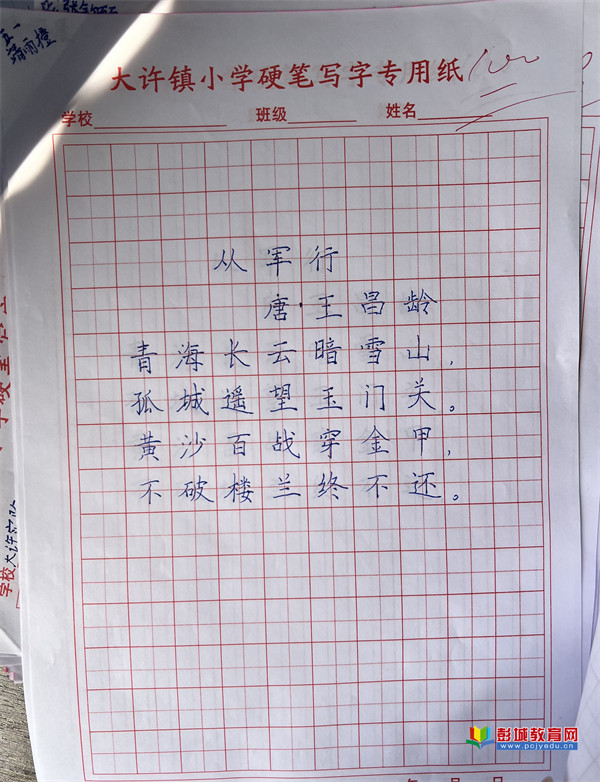 五一
大许镇小学硬笔写字专用纸
100
学校 班级 姓名
从军行
唐·王昌龄
青海长云暗雪山，
孤城遥望玉门关。
黄沙百战穿金甲，
不破楼兰终不还。
学校大许
彭城教育网
www.pcjyedu.cn